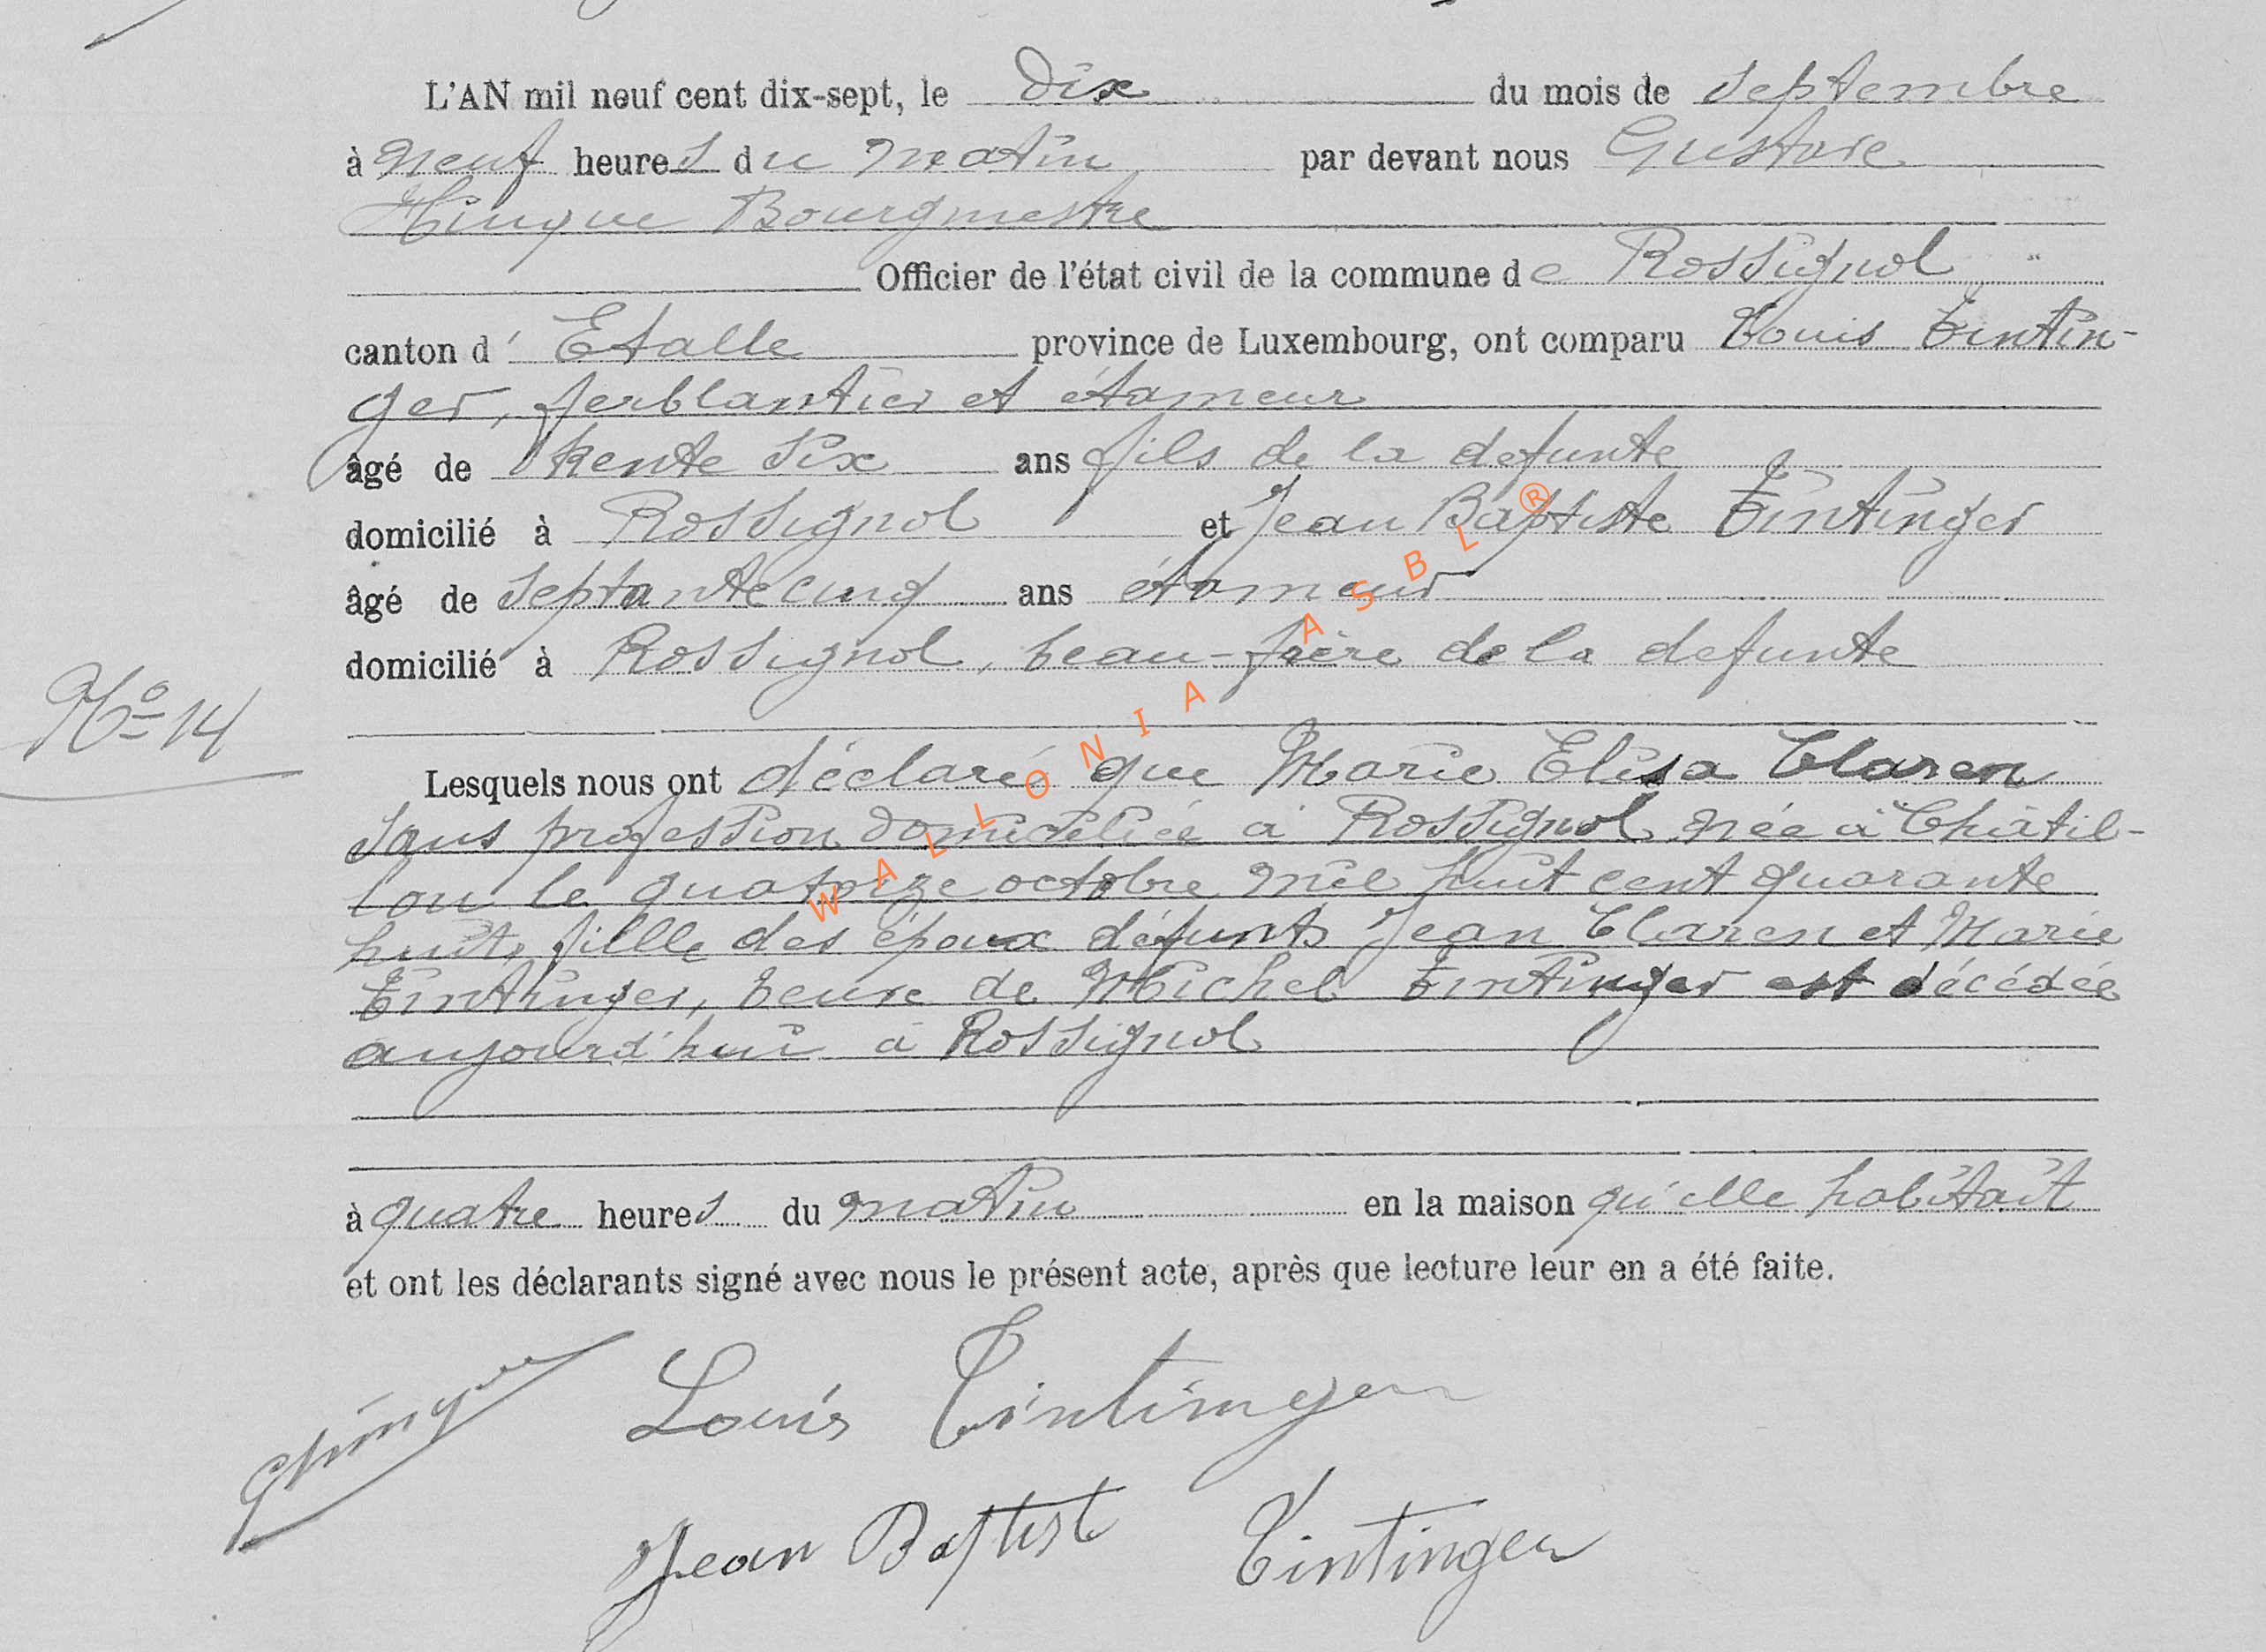 L'AN mil neuf cent dix-sept, le Dix du mois de Septembre
à neuf heures du matin par devant nous Gustave
Hinque Bourgmestre
Officier de l'état civil de la commune de Rossignol
canton d' Etalle province de Luxembourg, ont comparu Louis Tintin-
ger, ferblantier et étameur
âgé de trente six ans fils de la defunte
domicilié à Rossignol et Jean Baptiste Tintinger
âgé de septante cinq ans étameur
domicilié à Rossignol, beau-frère de la defunte
No 14
Lesquels nous ont déclaré que Marie Elisa Claren
sans profession domiciliée à Rossignol née à Châtil-
lon le quatorze octobre mil huit cent quarante
huit, fillle des époux défunts Jean Claren et Marie
Tintinger, veuve de Michel Tintinger est décédée
aujourd'hui à Rossignol
à quatre heures du matin en la maison qu'elle habitait
et ont les déclarants signé avec nous le présent acte, après que lecture leur en a été faite.
GHinque Louis Tintinger
Jean Baptist Tintinger
WALLONIA ASBL ®